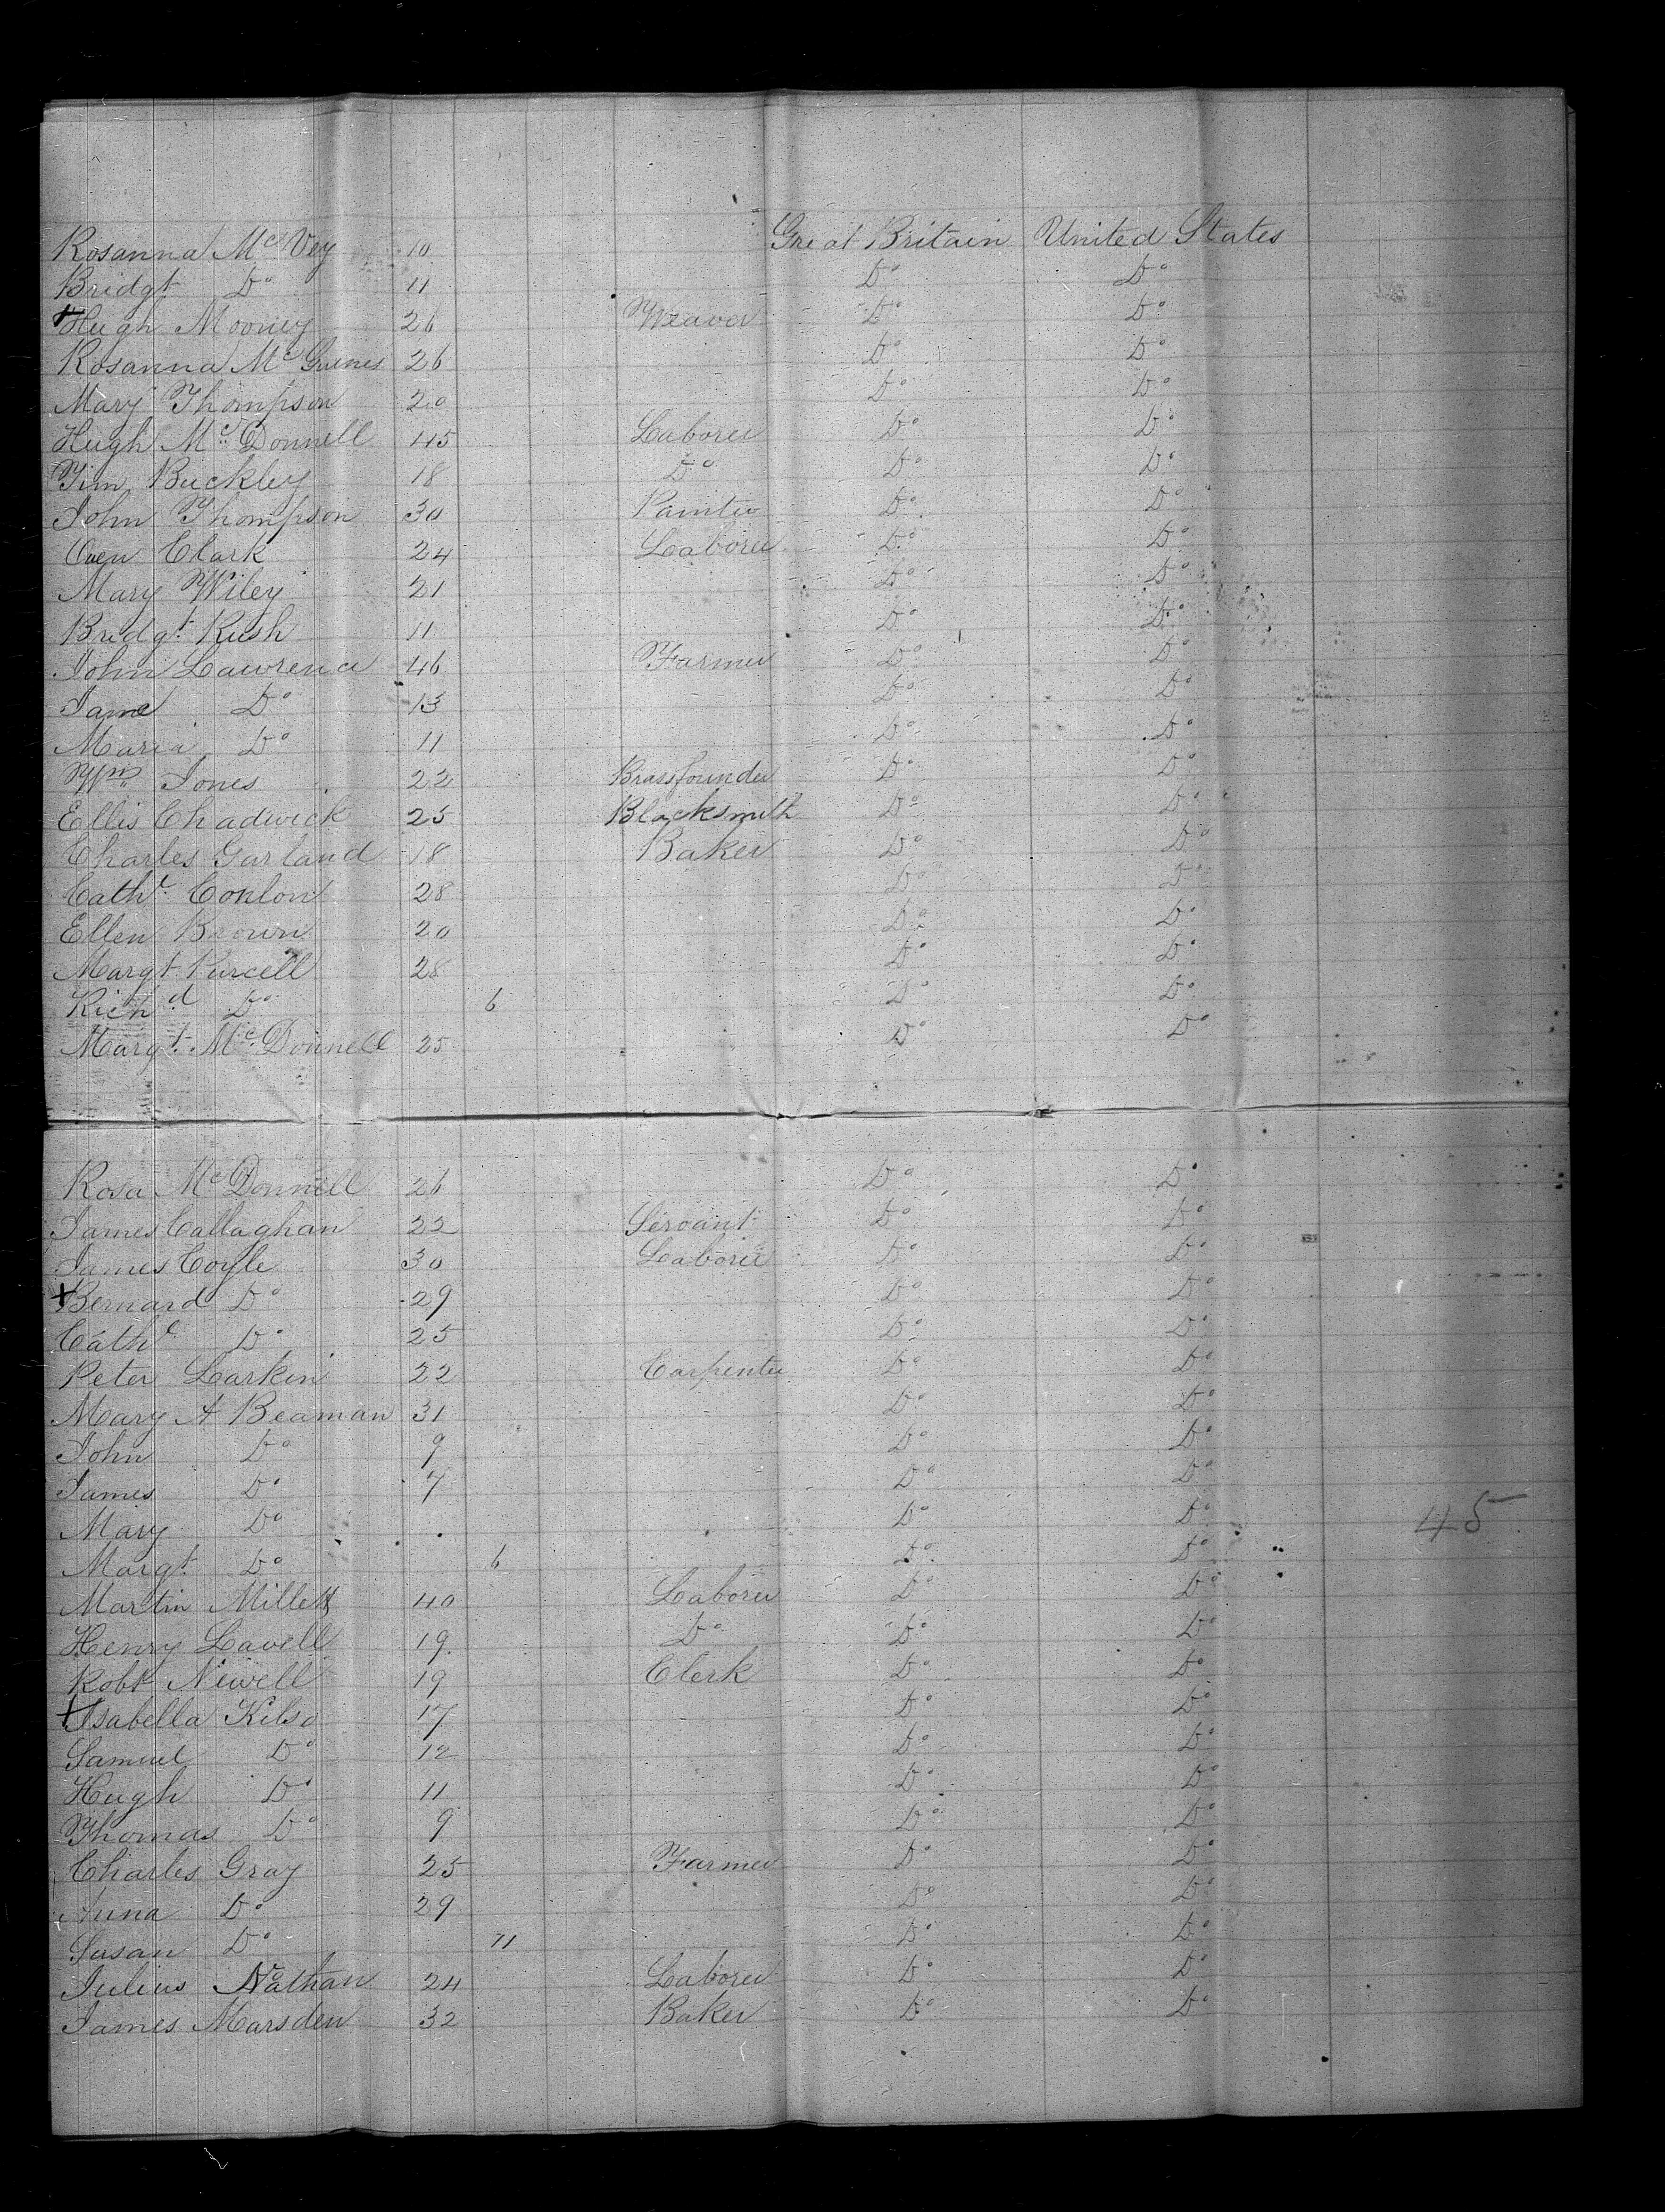 Rosanna McVey 10 Great Britain United States
Bridgt Do 11 Do Do
+Hugh Mooney 26 Weaver Do Do
Rosanna McGuines 26 Do Do
Mary Thompson 20 Do Do
Hugh McDonnell 45 Laborer Do Do
Tim Buckley 18 Do Do Do
John Thompson 30 Painter Do Do
Owen Clark 24 Laborer Do Do
Mary Wiley 21 Do Do
Bridgt Rush 11 Do Do
John Lawrence 46 Farmer Do Do
Jane Do 13 Do Do
Maria Do 11 Do Do
Wm Jones 22 Brassfounder Do Do
Ellis Chadwick 25 Blacksmith Do Do
Charles Garland 18 Baker Do Do
Cathe Conlon 28 Do Do
Ellen Brown 20 Do Do
Margt Purcell 28 Do Do
Richd Do 6 Do Do
Margt McDonnell 25 Do Do
Rosa McDonnell 26 Do Do
James Callaghan 22 Servant Do Do
James Coyle 30 Laborer Do Do
+Bernard Do 29 Do Do
Cathe Do 25 Do Do
Peter Larkin 22 Carpenter Do Do
Mary A Beaman 31 Do Do
John Do 9 Do Do
James Do 7 Do Do
Mary Do Do Do 45
Margt Do 6 Do Do
Martin Millett 40 Laborer Do Do
Henry Lavell 19 Do Do Do
Robt Newell 19 Clerk Do Do
+Isabella Kilso 17 Do Do
Samuel Do 12 Do Do
Hugh Do 11 Do Do
Thomas Do 9 Do Do
Charles Gray 25 Farmer Do Do
Anna Do 29 Do Do
Susan Do 11 Do Do
Julius Nathan 24 Laborer Do Do
James Marsden 32 Baker Do Do